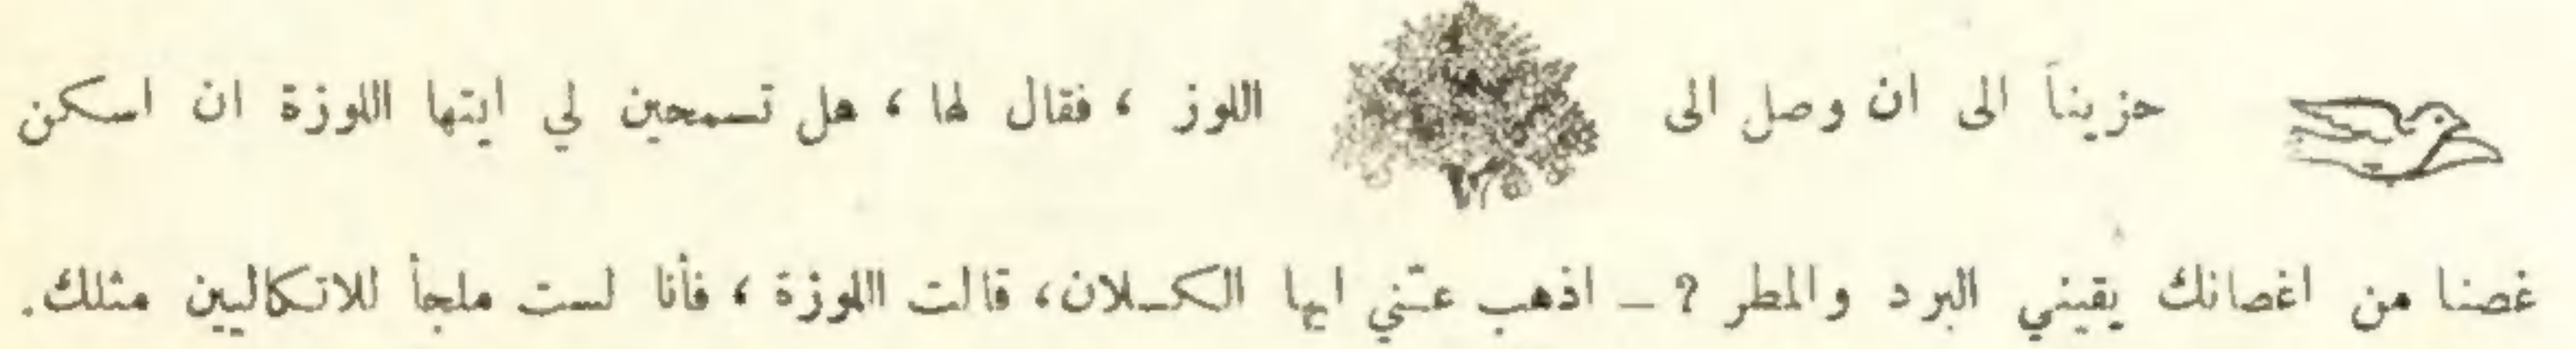 حزيناً الى ان وصل الى اللوز ، فقال لها ، هل تسمحين لي ايتها اللوزة ان اسكن
غصنا من اغصانك يقيني البرد والمطر ? ــ اذهب عنّي ايها الكسلان، قالت اللوزة ، فأنا لست ملجأ للاتكاليين مثلك .